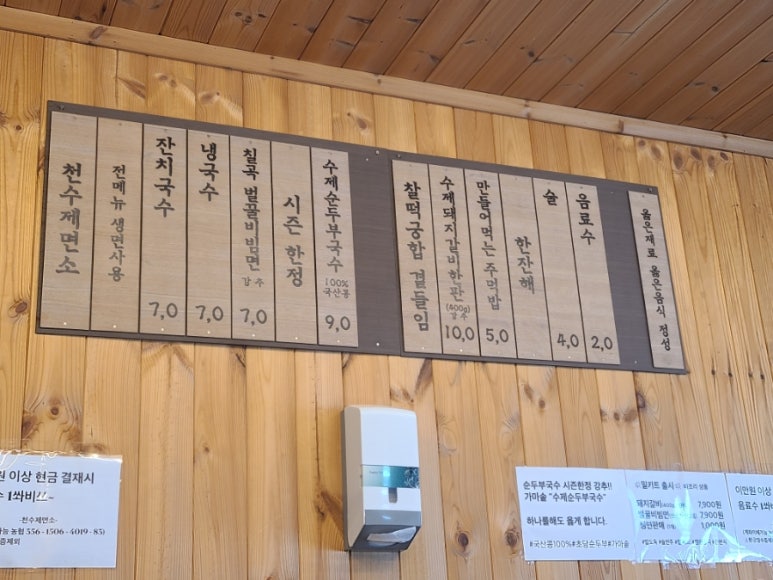 천수제면소
전메뉴 생면사용
잔치국수 7,0
냉국수 7,0
칠곡 벌꿀비빔면 강추 7,0
시즌 한정
수제순두부국수 100% 국산콩 9,0
찰떡궁합 곁들임
수제돼지갈비한판 (400g) 강추 10,0
만들어먹는 주먹밥 5,0
한잔해
술 4,0
음료수 2,0
옳은재료 옳은음식 정성
원 이상 현금 결재시
수 1쏴비쓰~
-천수제면소-
농협 356-1506-4019-83)
제외
순두부국수 시즌한정 강추!!
가마솥 "수제순두부국수"
하나를해도 옳게 합니다.
#국산콩100%#초당순두부#가마솥
밀키트 출시
돼지갈비(400g) 7,900원
벌꿀비빔면 7,900원
1,000원
이만원 이상
음료수 1쏴